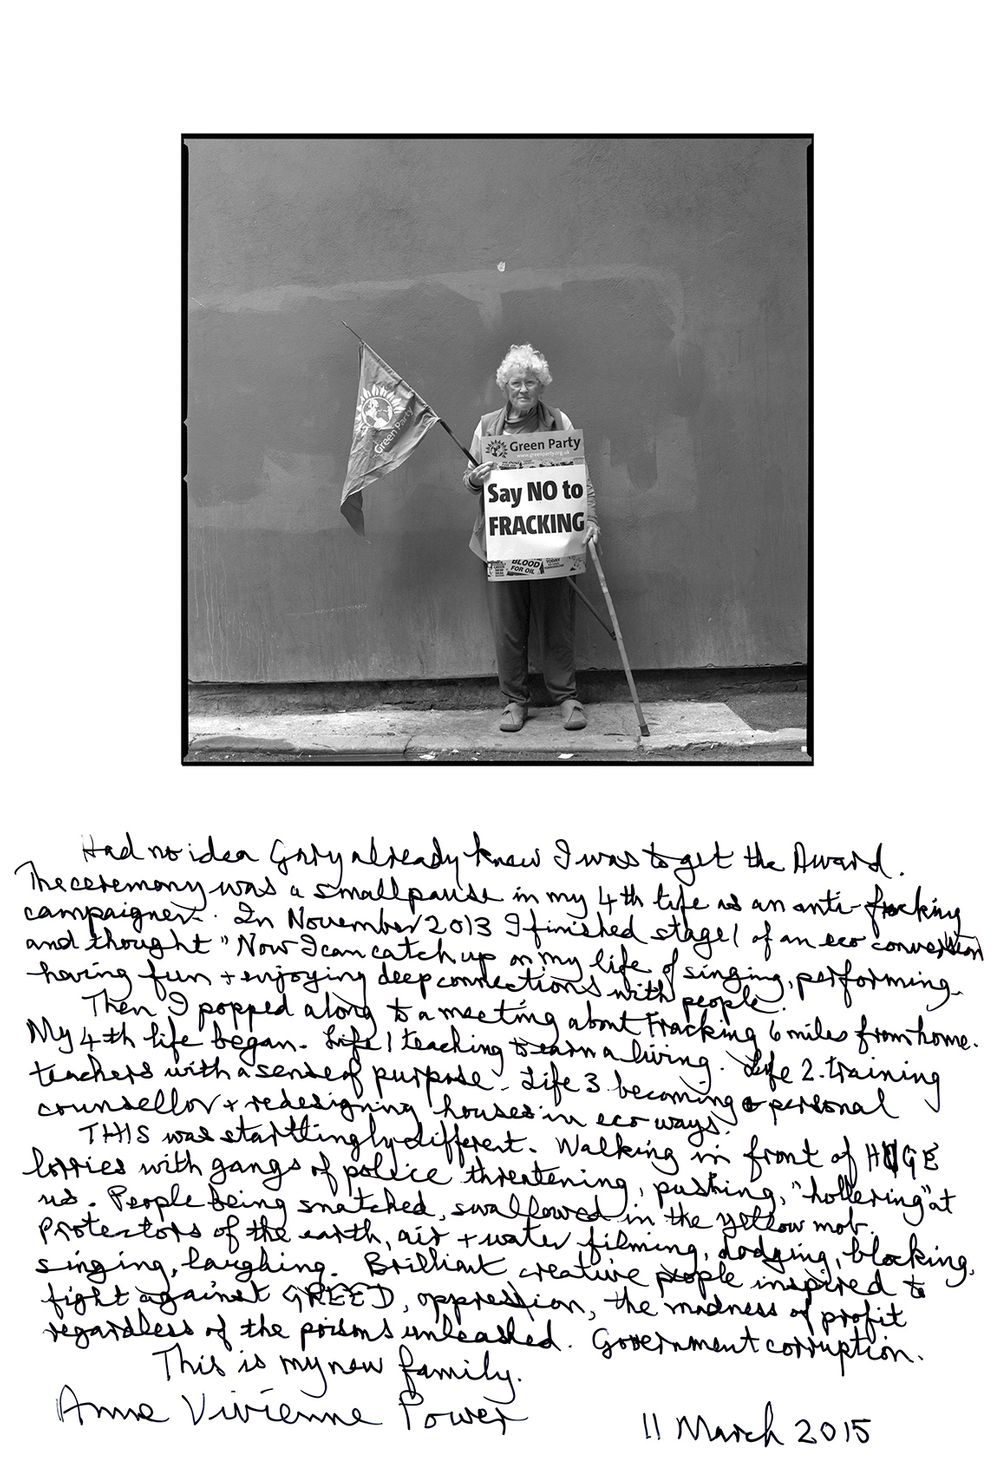 Green Party
Green Party
www.greenparty.org.uk
Say NO to
FRACKING
BLOOD
FOR OIL
Had no idea Gary already knew I was to get the Award.
The ceremony was a small pause in my 4th life as an anti-fracking
campaigner. In November 2013 I finished stage 1 of an eco conversion
and thought "Now I can catch up on my life of singing, performing.
having fun + enjoying deep connections with people.
Then I popped along to a meeting about Fracking 6 miles from home.
My 4th life began. Life 1 teaching to earn a living. Life 2. training
teachers with a sense of purpose. Life 3 becoming a personal
counsellor + redesigning houses in eco ways.
THIS was startlingly different. Walking in front of HUGE
lorries with gangs of police threatening, pushing, "hollering" at
us. People being snatched, swallowed in the yellow mob.
Protectors of the earth, air + water filming, dodging, blocking,
singing, laughing. Brilliant creative people inspired to
fight against GREED, oppression, the madness of profit
regardless of the poisons unleashed. Government corruption.
This is my new family.
Anne Vivienne Power
11 March 2015